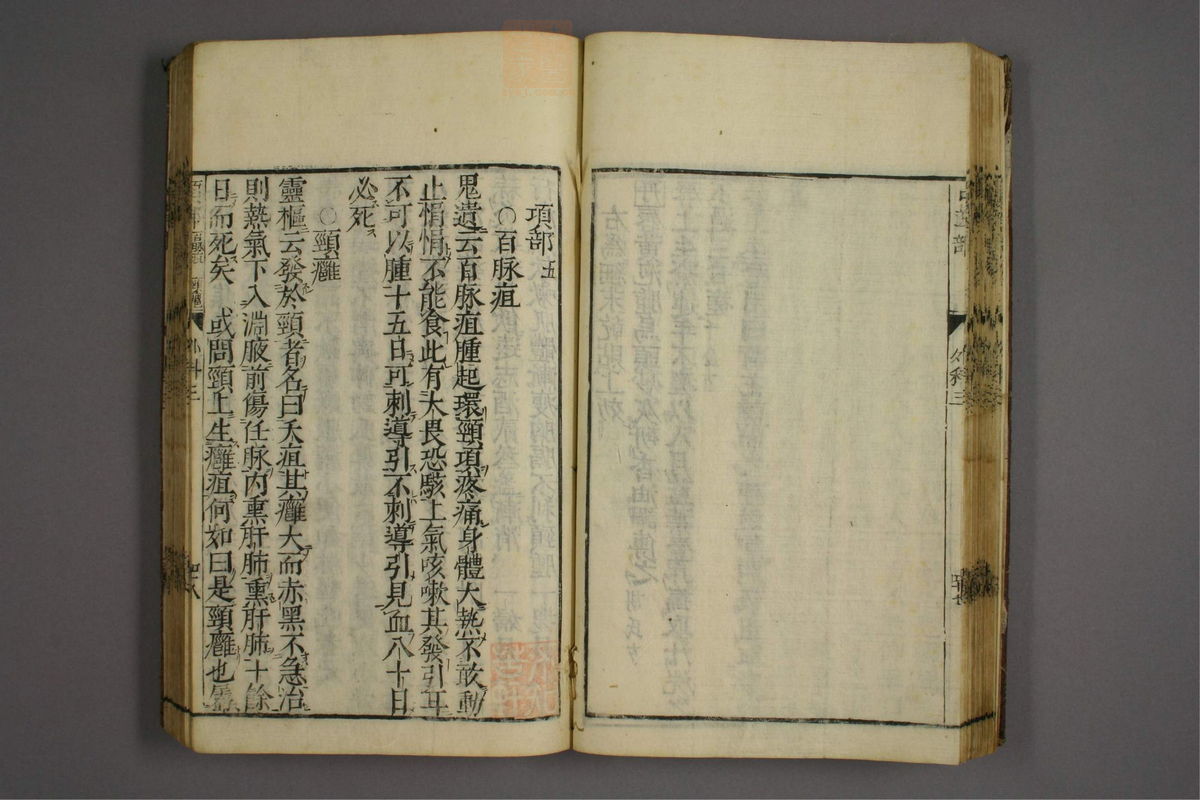 項部五
○百脉疽
鬼遺云百脉疽腫起環頸項疼痛身體大熱不敢動
止悁悁不能食此有大畏恐駭上氣咳嗽其發引耳
不可以腫十五日可刺導引不刺導引見血八十日
必死
○頸癰
靈樞云發於頸者名曰夭疽其癰大而赤黑不急治
則熱氣下入淵腋前傷任脉内熏肝肺熏肝肺十餘
日而死矣 或問頸上生癰疽何如曰是頸癰也
外科三
四八
外科三